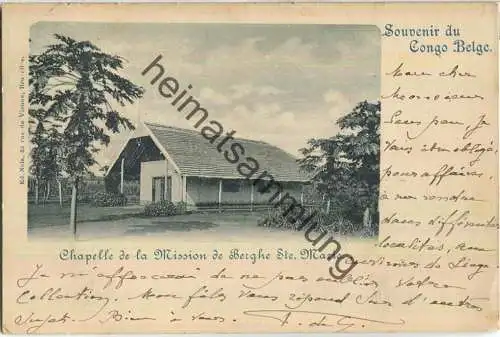 Souvenir du
Congo Belge.
Mon cher
Monsieur
Sans peu je
vais être obligé
pour affaires,
à me rendre
dans différentes
localités, aux
environs de Liège
Chapelle de la Mission de Berghe Ste. Marie
Je m'efforcerai de ne pas oublier votre
collection. Mon fils vous répond sur d'autres
sujet. Bien à vous.
Ed. Nels, rue de Vienne,
heimatsammlung.de